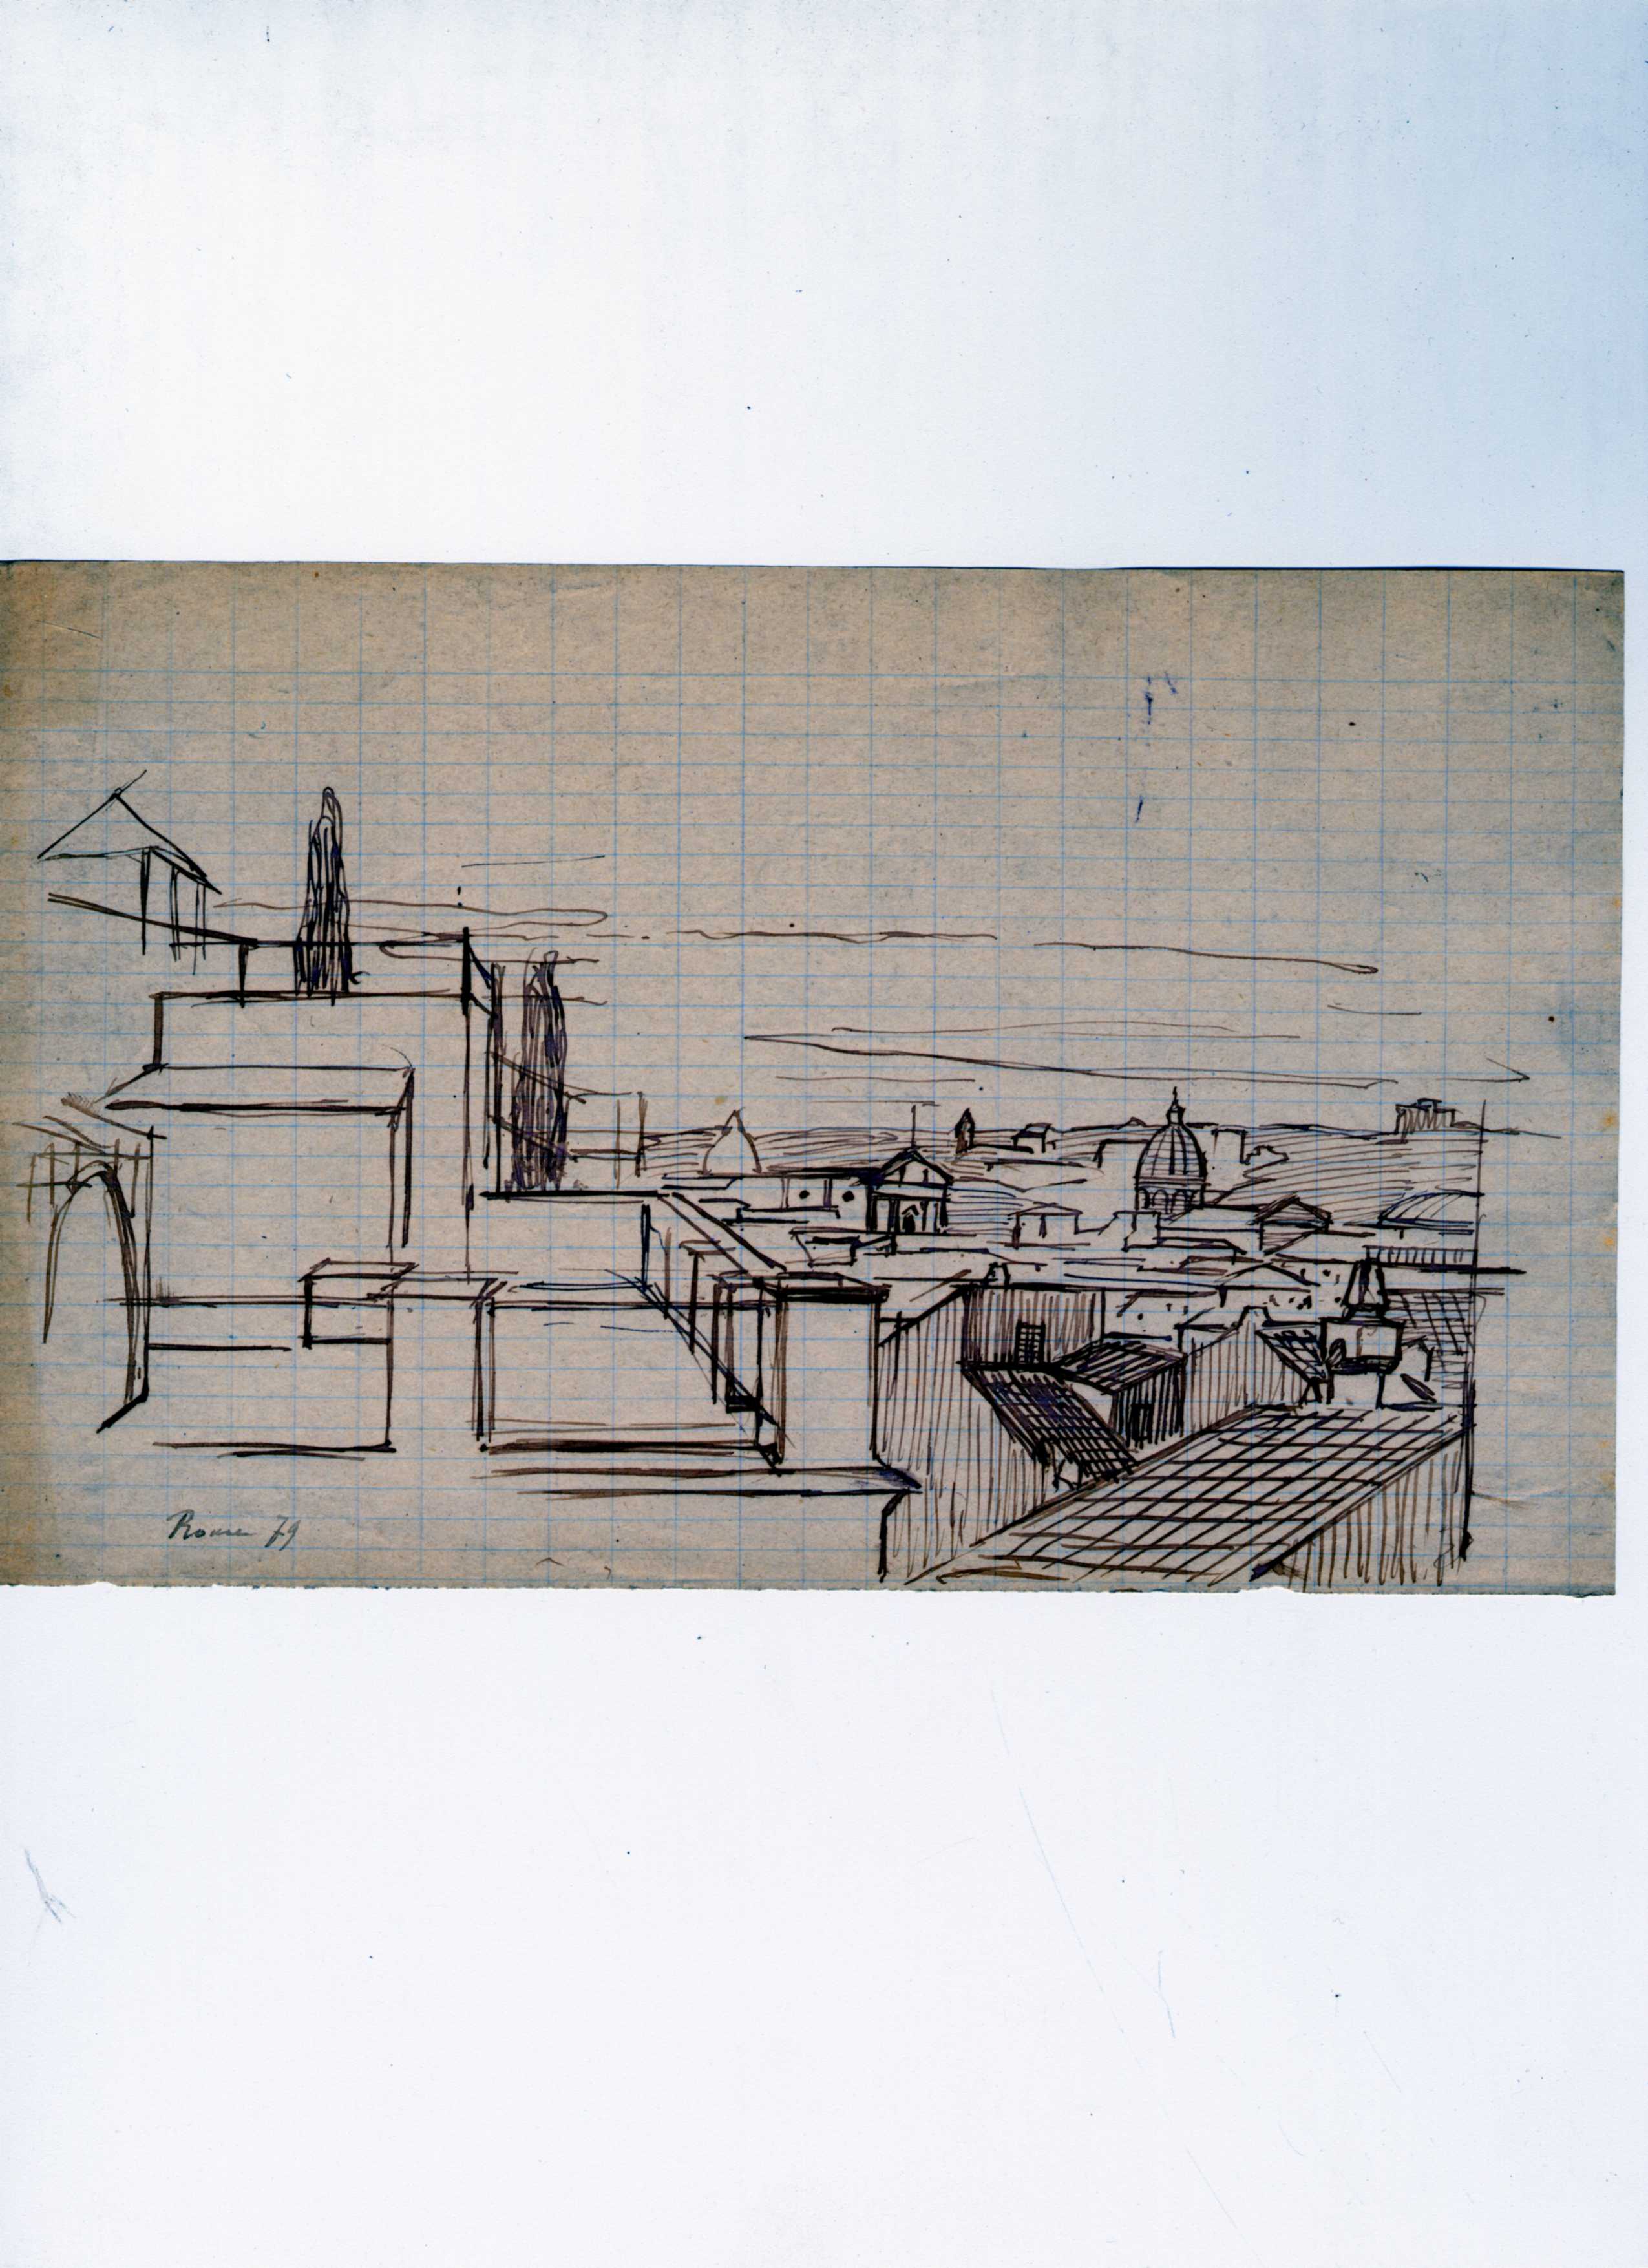 Rome 79